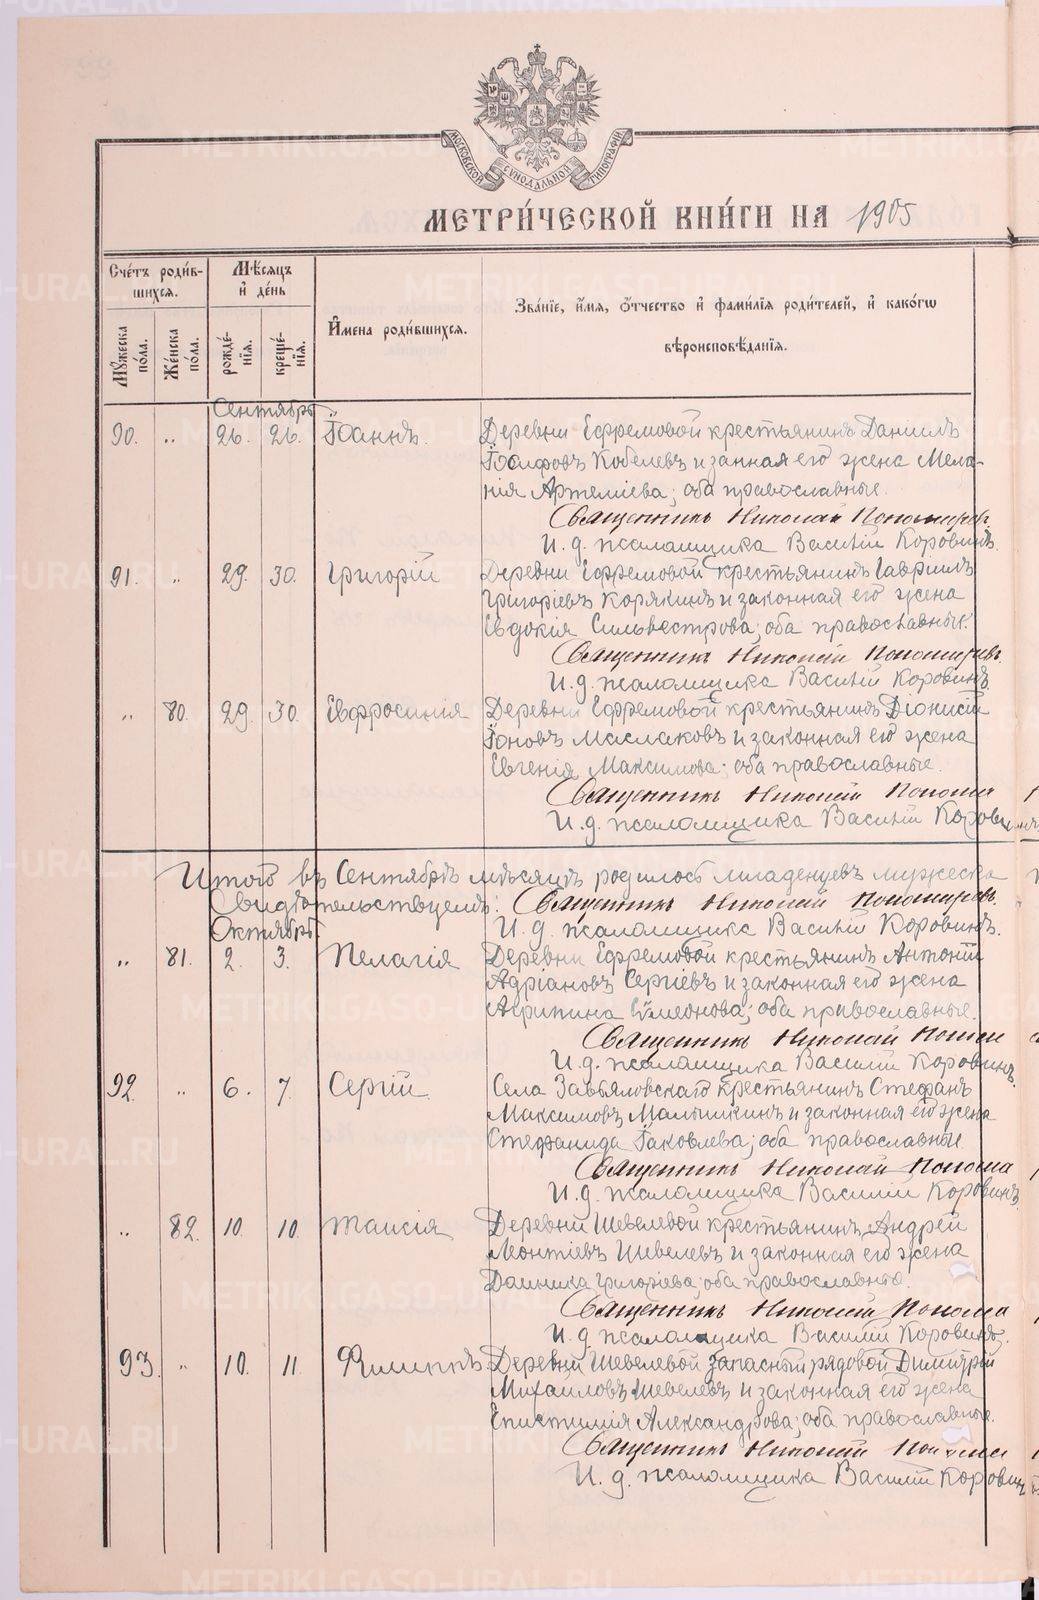 МОСКОВСКОЙ СѴНОДАЛЬНОЙ ТИПОГРАФІИ
МЕТРИ́ЧЕСКОЙ КНИ́ГИ НА 1905
Сче́тъ роди́в-
шихся.
Мꙋ́жеска
по́ла.
Же́нска
по́ла.
Мѣ́сяцъ
и҆ де́нь
рожде́-
нїѧ.
креще́-
нїѧ.
И҆мена роди́вшихся.
Зва́нїе, и҆́мя, ѻ҆́тчество и҆ фами́лїѧ роди́телей, и҆ како́гѡ
вѣроисповѣ́данїѧ.
Сентябрь
90. " 26. 26. Іоаннъ. Деревни Ефремовой крестьянинъ Даніилъ
Іоасафовъ Кобелевъ и законная его жена Мела-
нія Артеміева; оба православные.
Священникъ Николай Пономаревъ.
И. д. псаломщика Василій Коровинъ.
91. " 29. 30. Григорій Деревни Ефремовой крестьянинъ Гавріилъ
Григоріевъ Корякинъ и законная его жена
Евдокія Сильвестрова; оба православные.
Священникъ Николай Пономаревъ.
И. д. псаломщика Василій Коровинъ.
" 80. 29. 30. Евфросинія Деревни Ефремовой крестьянинъ Діонисій
Іоновъ Маслаковъ и законная его жена
Евгенія Максимова; оба православные.
Священникъ Николай Понома
И. д. псаломщика Василій Коровинъ
Итого въ Сентябрѣ мѣсяцѣ родилось младенцевъ мужеска
Свидѣтельствуемъ: Священникъ Николай Пономаревъ.
Октябрь. И. д. псаломщика Василій Коровинъ.
" 81. 2. 3. Пелагія Деревни Ефремовой крестьянинъ Антоній
Адріановъ Сергіевъ и законная его жена
Агрипина Сѵмеонова; оба православные.
Священникъ Николай Поном
И. д. псаломщика Василій Коровинъ.
92. " 6. 7. Сергій. Села Завьяловскаго крестьянинъ Стефанъ
Максимовъ Малышкинъ и законная его жена
Стефанида Іаковлева; оба православные
Священникъ Николай Понома
И. д. псаломщика Василій Коровинъ.
" 82. 10. 10. Таисія Деревни Шевелевой крестьянинъ Андрей
Леонтіевъ Шевелевъ и законная его жена
Домника Григоріева; оба православные.
Священникъ Николай Понома
И. д. псаломщика Василій Коровинъ.
93. " 10. 11. Филиппъ Деревни Шевелевой запасный рядовой Димитрій
Михайловъ Шевелевъ и законная его жена
Епистимія Александрова; оба православные.
Священникъ Николай Понома
И. д. псаломщика Василій Коровинъ
METRIKI.GASO-URAL.RU